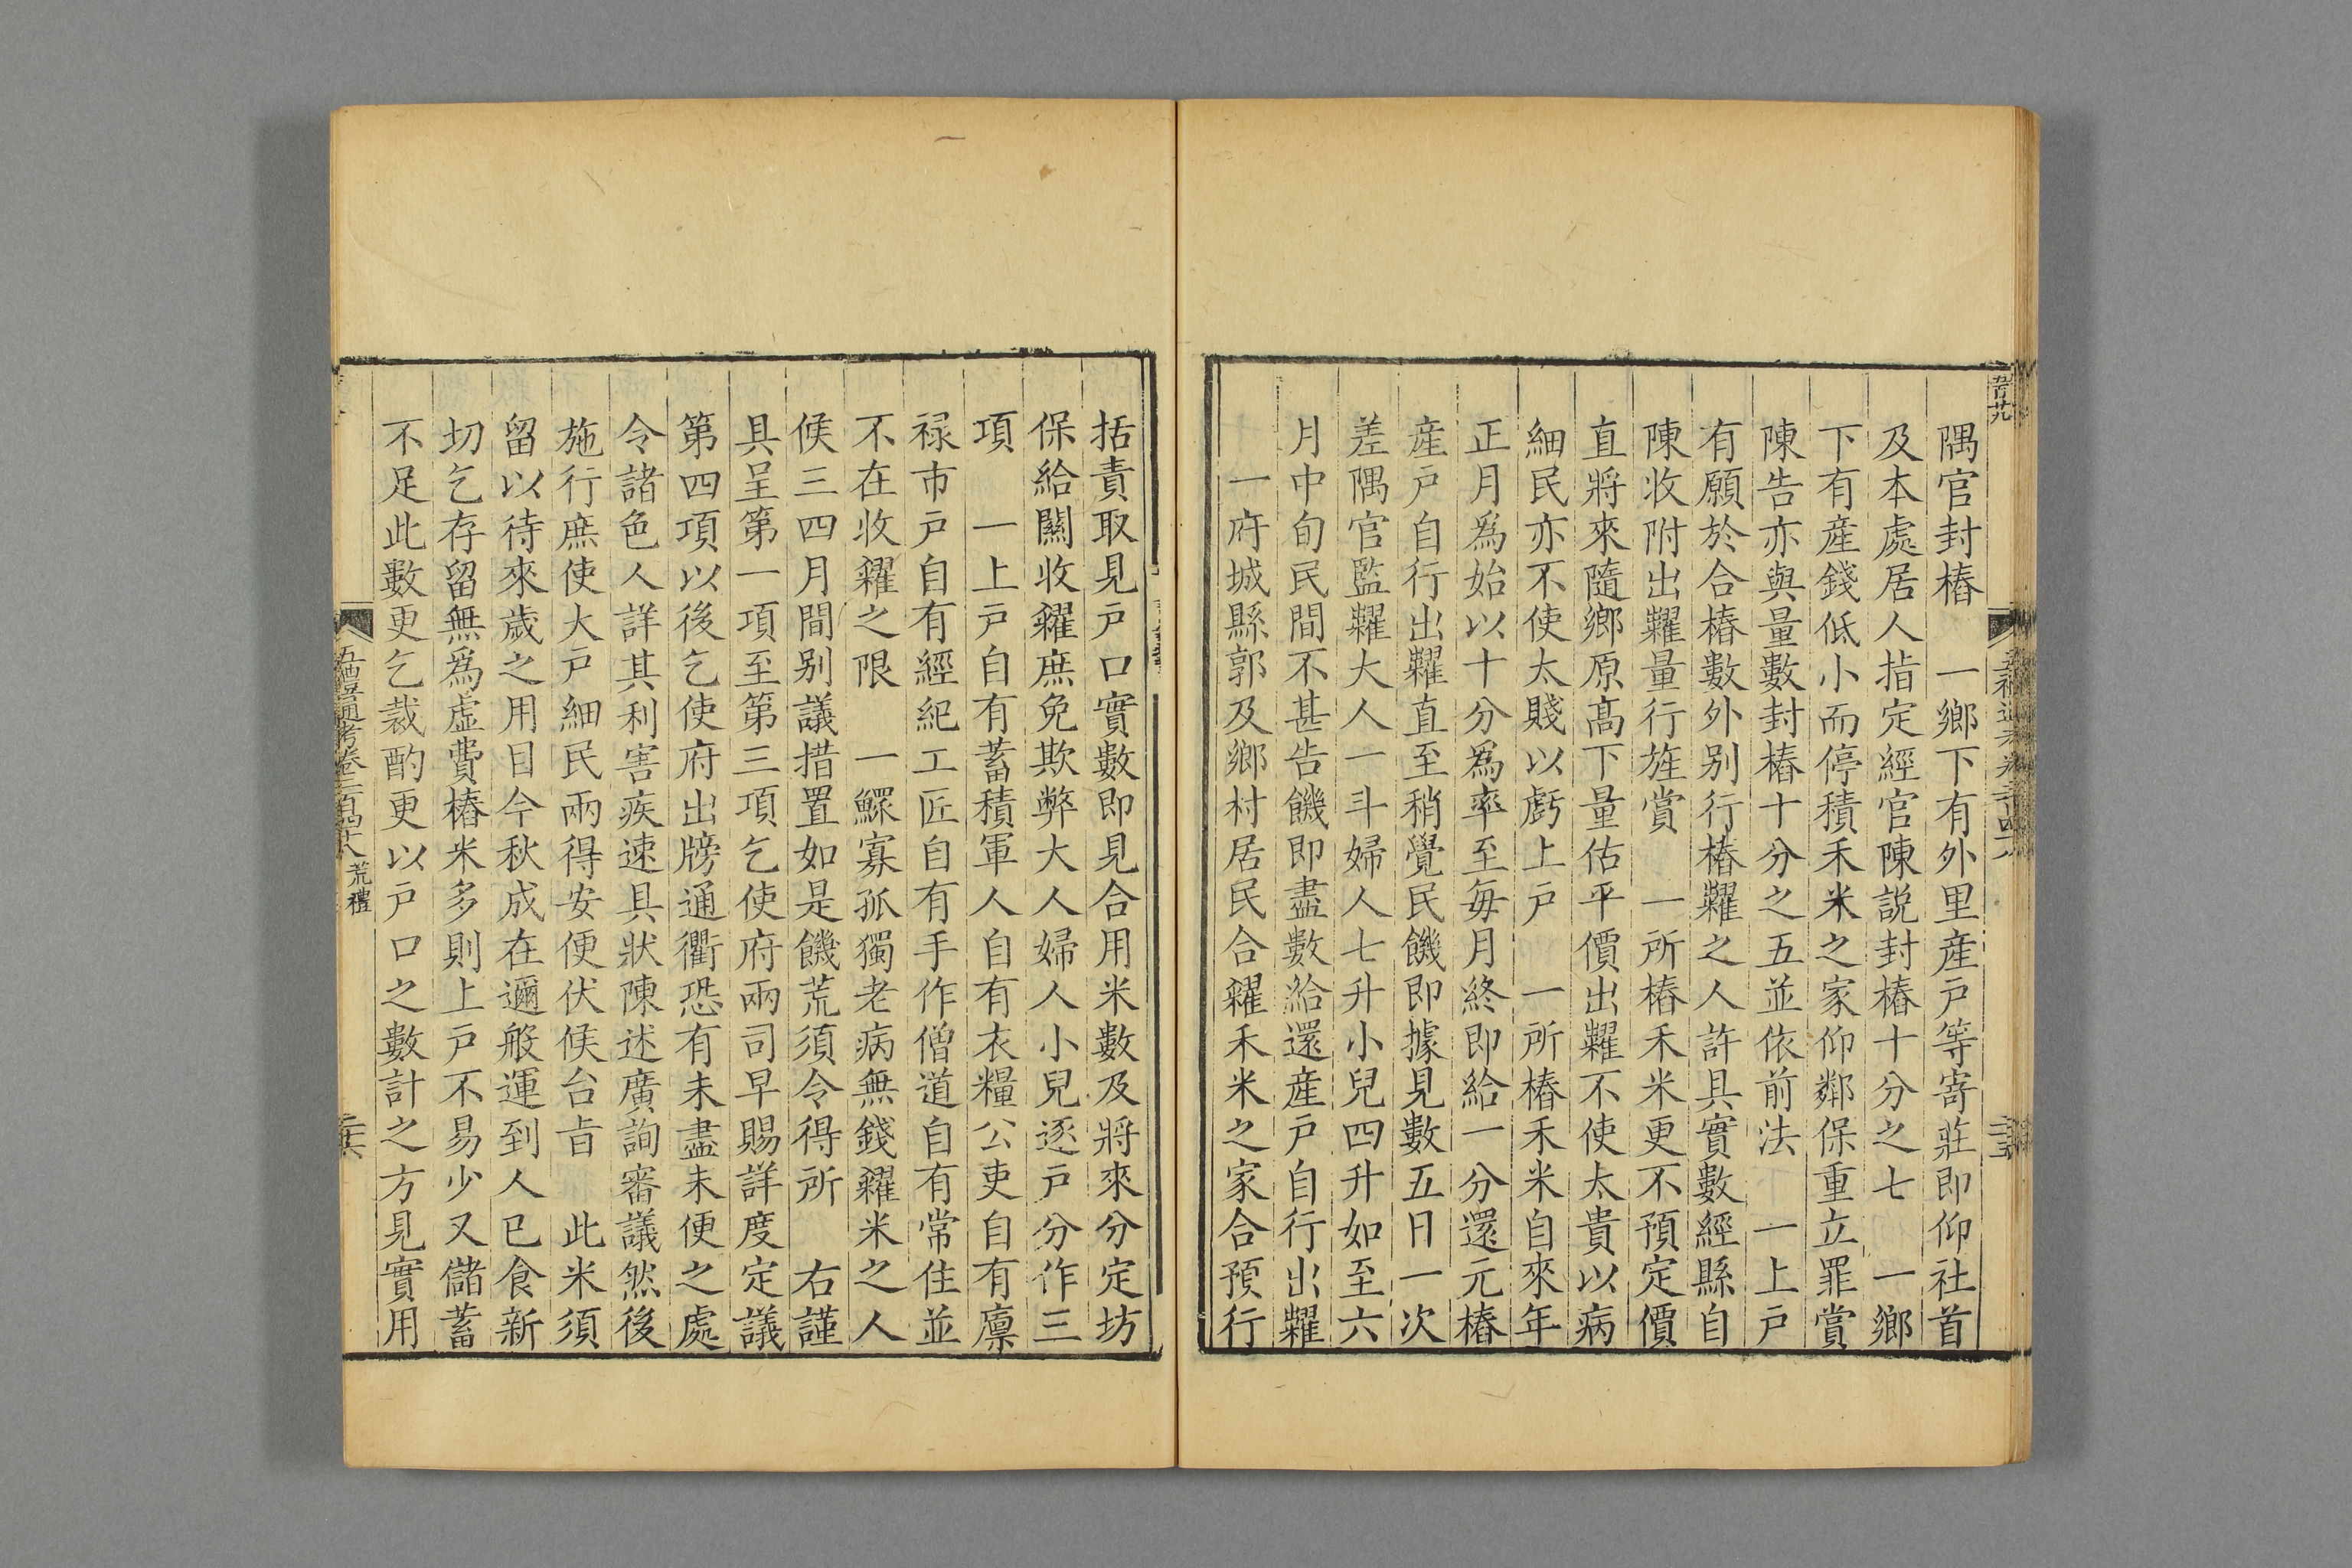 隅官封樁　一鄉下有外里産戸等寄莊即仰社首
及本處居人指定經官陳説封樁十分之七　一鄉
下有産錢低小而停積禾米之家仰鄰保重立罪賞
陳告亦與量數封樁十分之五並依前法　一上戸
有願於合樁數外别行樁糶之人許具實數經縣自
陳收附出糶量行旌賞　一所樁禾米更不預定價
直將來隨鄉原髙下量估平價出糶不使太貴以病
細民亦不使太賤以虧上戸　一所樁禾米自來年
正月爲始以十分爲率至每月終即給一分還元樁
産戸自行出糶直至稍覺民饑即據見數五日一次
差隅官監糶大人一斗婦人七升小兒四升如至六
月中旬民間不甚告饑即盡數給還産戸自行出糶
一府城縣郭及鄉村居民合糴禾米之家合預行
括責取見戸口實數即見合用米數及將來分定坊
保給關收糴庶免欺弊大人婦人小兒逐戸分作三
項　一上戸自有蓄積軍人自有衣糧公吏自有廪
禄市戸自有經紀工匠自有手作僧道自有常住並
不在收糴之限　一鰥寡孤獨老病無錢糴米之人
候三四月間别議措置如是饑荒須令得所　右謹
具呈第一項至第三項乞使府兩司早賜詳度定議
第四項以後乞使府出牓通衢恐有未盡未便之處
令諸色人詳其利害疾速具狀陳述廣詢審議然後
施行庶使大戸細民兩得安便伏候台旨　此米須
留以待來歲之用目今秋成在邇般運到人已食新
切乞存留無爲虚費樁米多則上戸不易少又儲蓄
不足此數更乞裁酌更以戸口之數計之方見實用
五禮通考卷二百四十八 荒禮
二十六